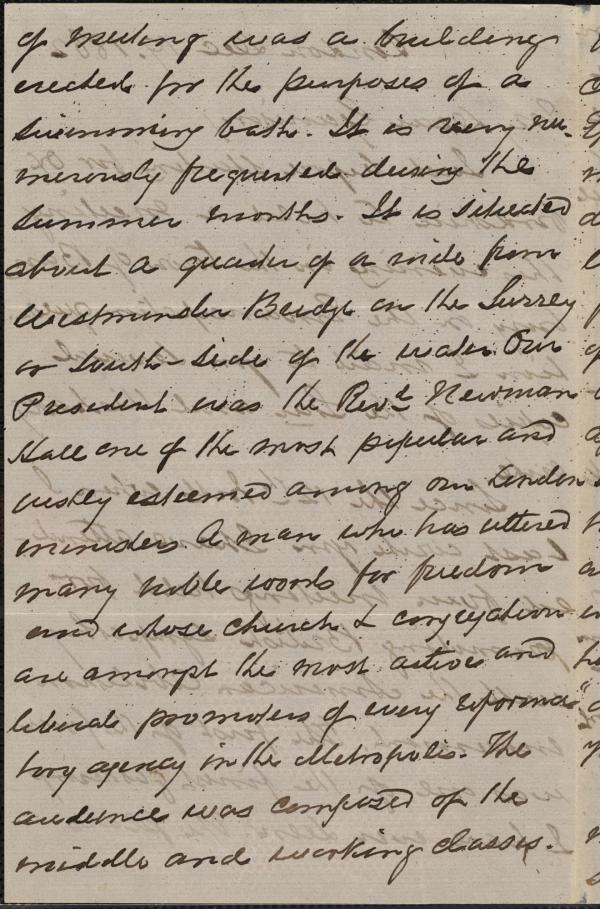 of meeting was a building
erected for the purposes of a
swimming bath. It is very nu-
merously frequented during the
summer months. It is situated
about a quarter of a mile from
Westminster Bridge on the Surrey
or South-side of the water. Our
President was the Revd. Newman
Hall one of the most popular and
justly esteemed among our London
ministers. A man who has uttered
many noble words for freedom
and whose church & congregation
are amongst the most active and
liberal promoters of every reforma-
tory agency in the Metropolis. The
audience was composed of the
middle and working classes.